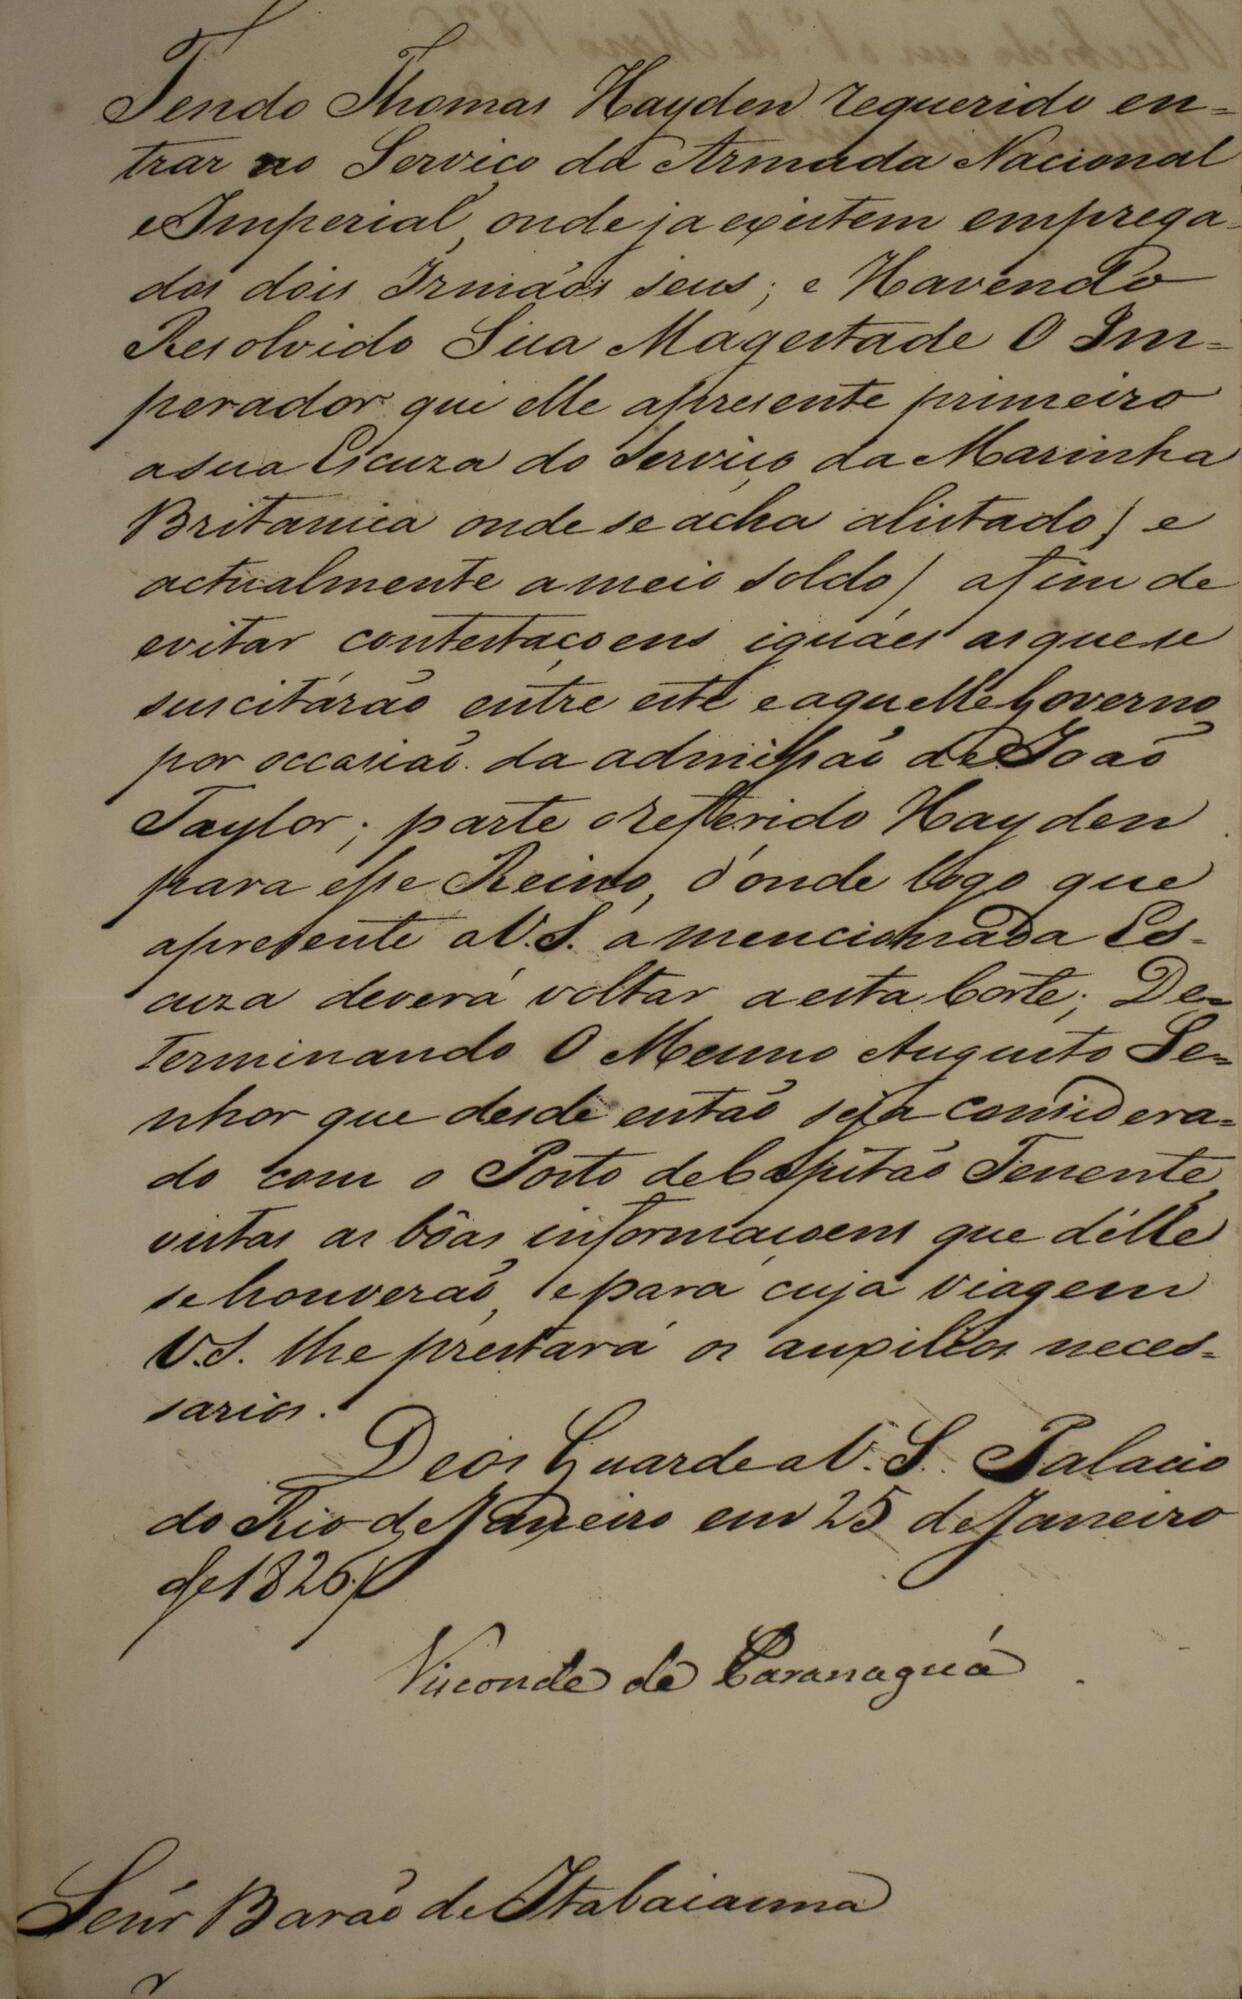 Tendo Thomas Hayden requerido en-
trar no Serviço da Armada Nacional
e Imperial, onde ja existem emprega-
dos dois Irmãos seus; e Havendo
Resolvido Sua Magestade O Im-
perador que elle apresente primeiro
a sua Escuza do Serviço da Marinha
Britanica onde se acha alistado / e
actualmente a meio soldo / afim de
evitar contestaçoens iguáes as que se
suscitárão entre este e aquelle Governo
por occasião da admissão de João
Taylor; parte o refferido Hayden
para esse Reino, d'onde logo que
apresente a V.S. a mencionada Es-
cuza deverá voltar a esta Corte; De-
terminando O Mesmo Augusto Se-
nhor que desde então seja considera-
do com o Posto de Capitão Tenente,
vistas as bôas informaçoens que d'elle
se houverão, e para cuja viagem
V.S. lhe prestará os auxilios neces-
sarios.
Deos Guarde a V.S. Palacio
do Rio de Janeiro em 25 de Janeiro
de 1826./
Visconde de Paranaguá
Senr Barão de Itabaianna